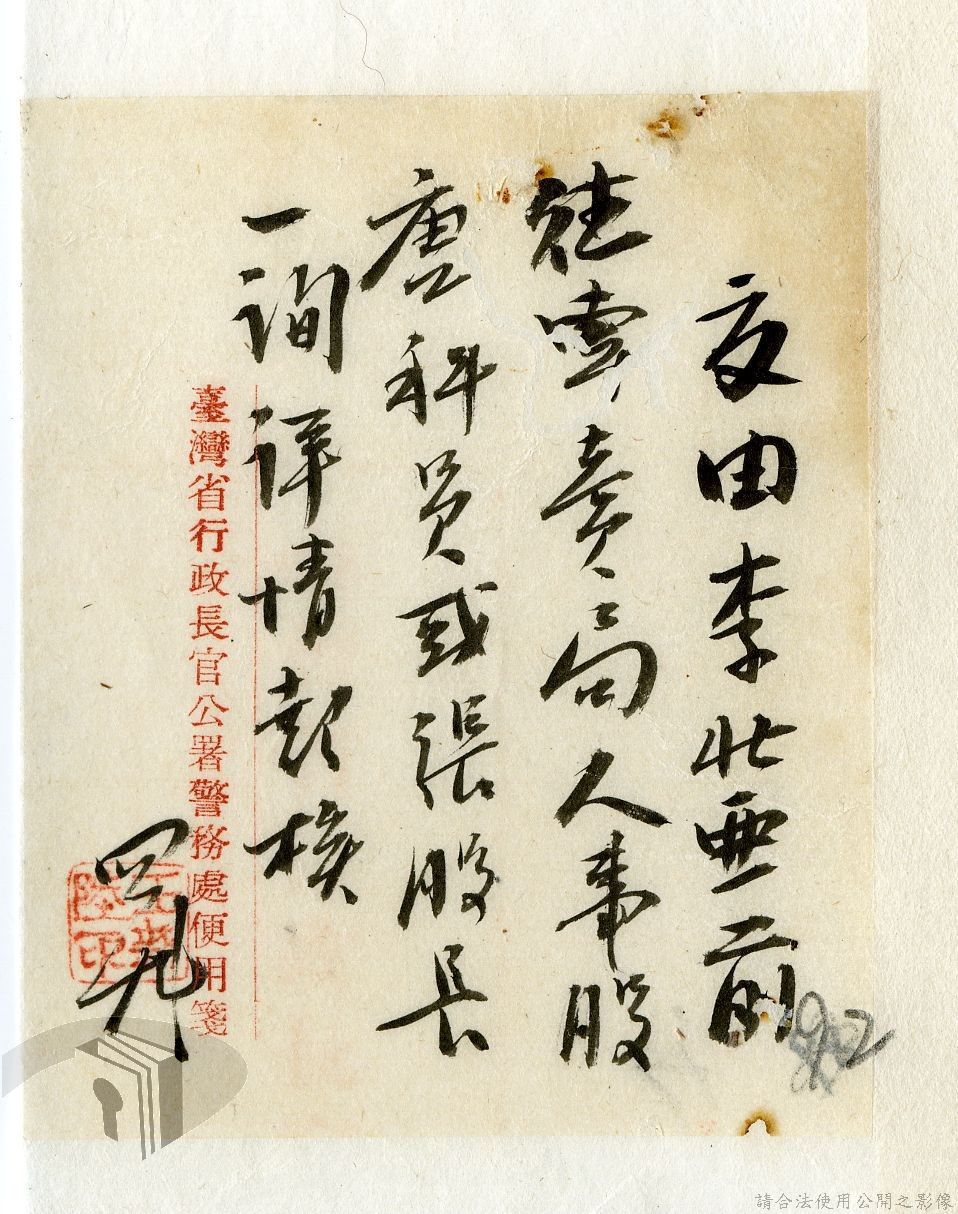 交由李兆亞前
往專賣局人事股
唐科員或張股長
一詢詳情報核
四九
臺灣省行政長官公署警務處便用箋
92
請合法使用公開之影像